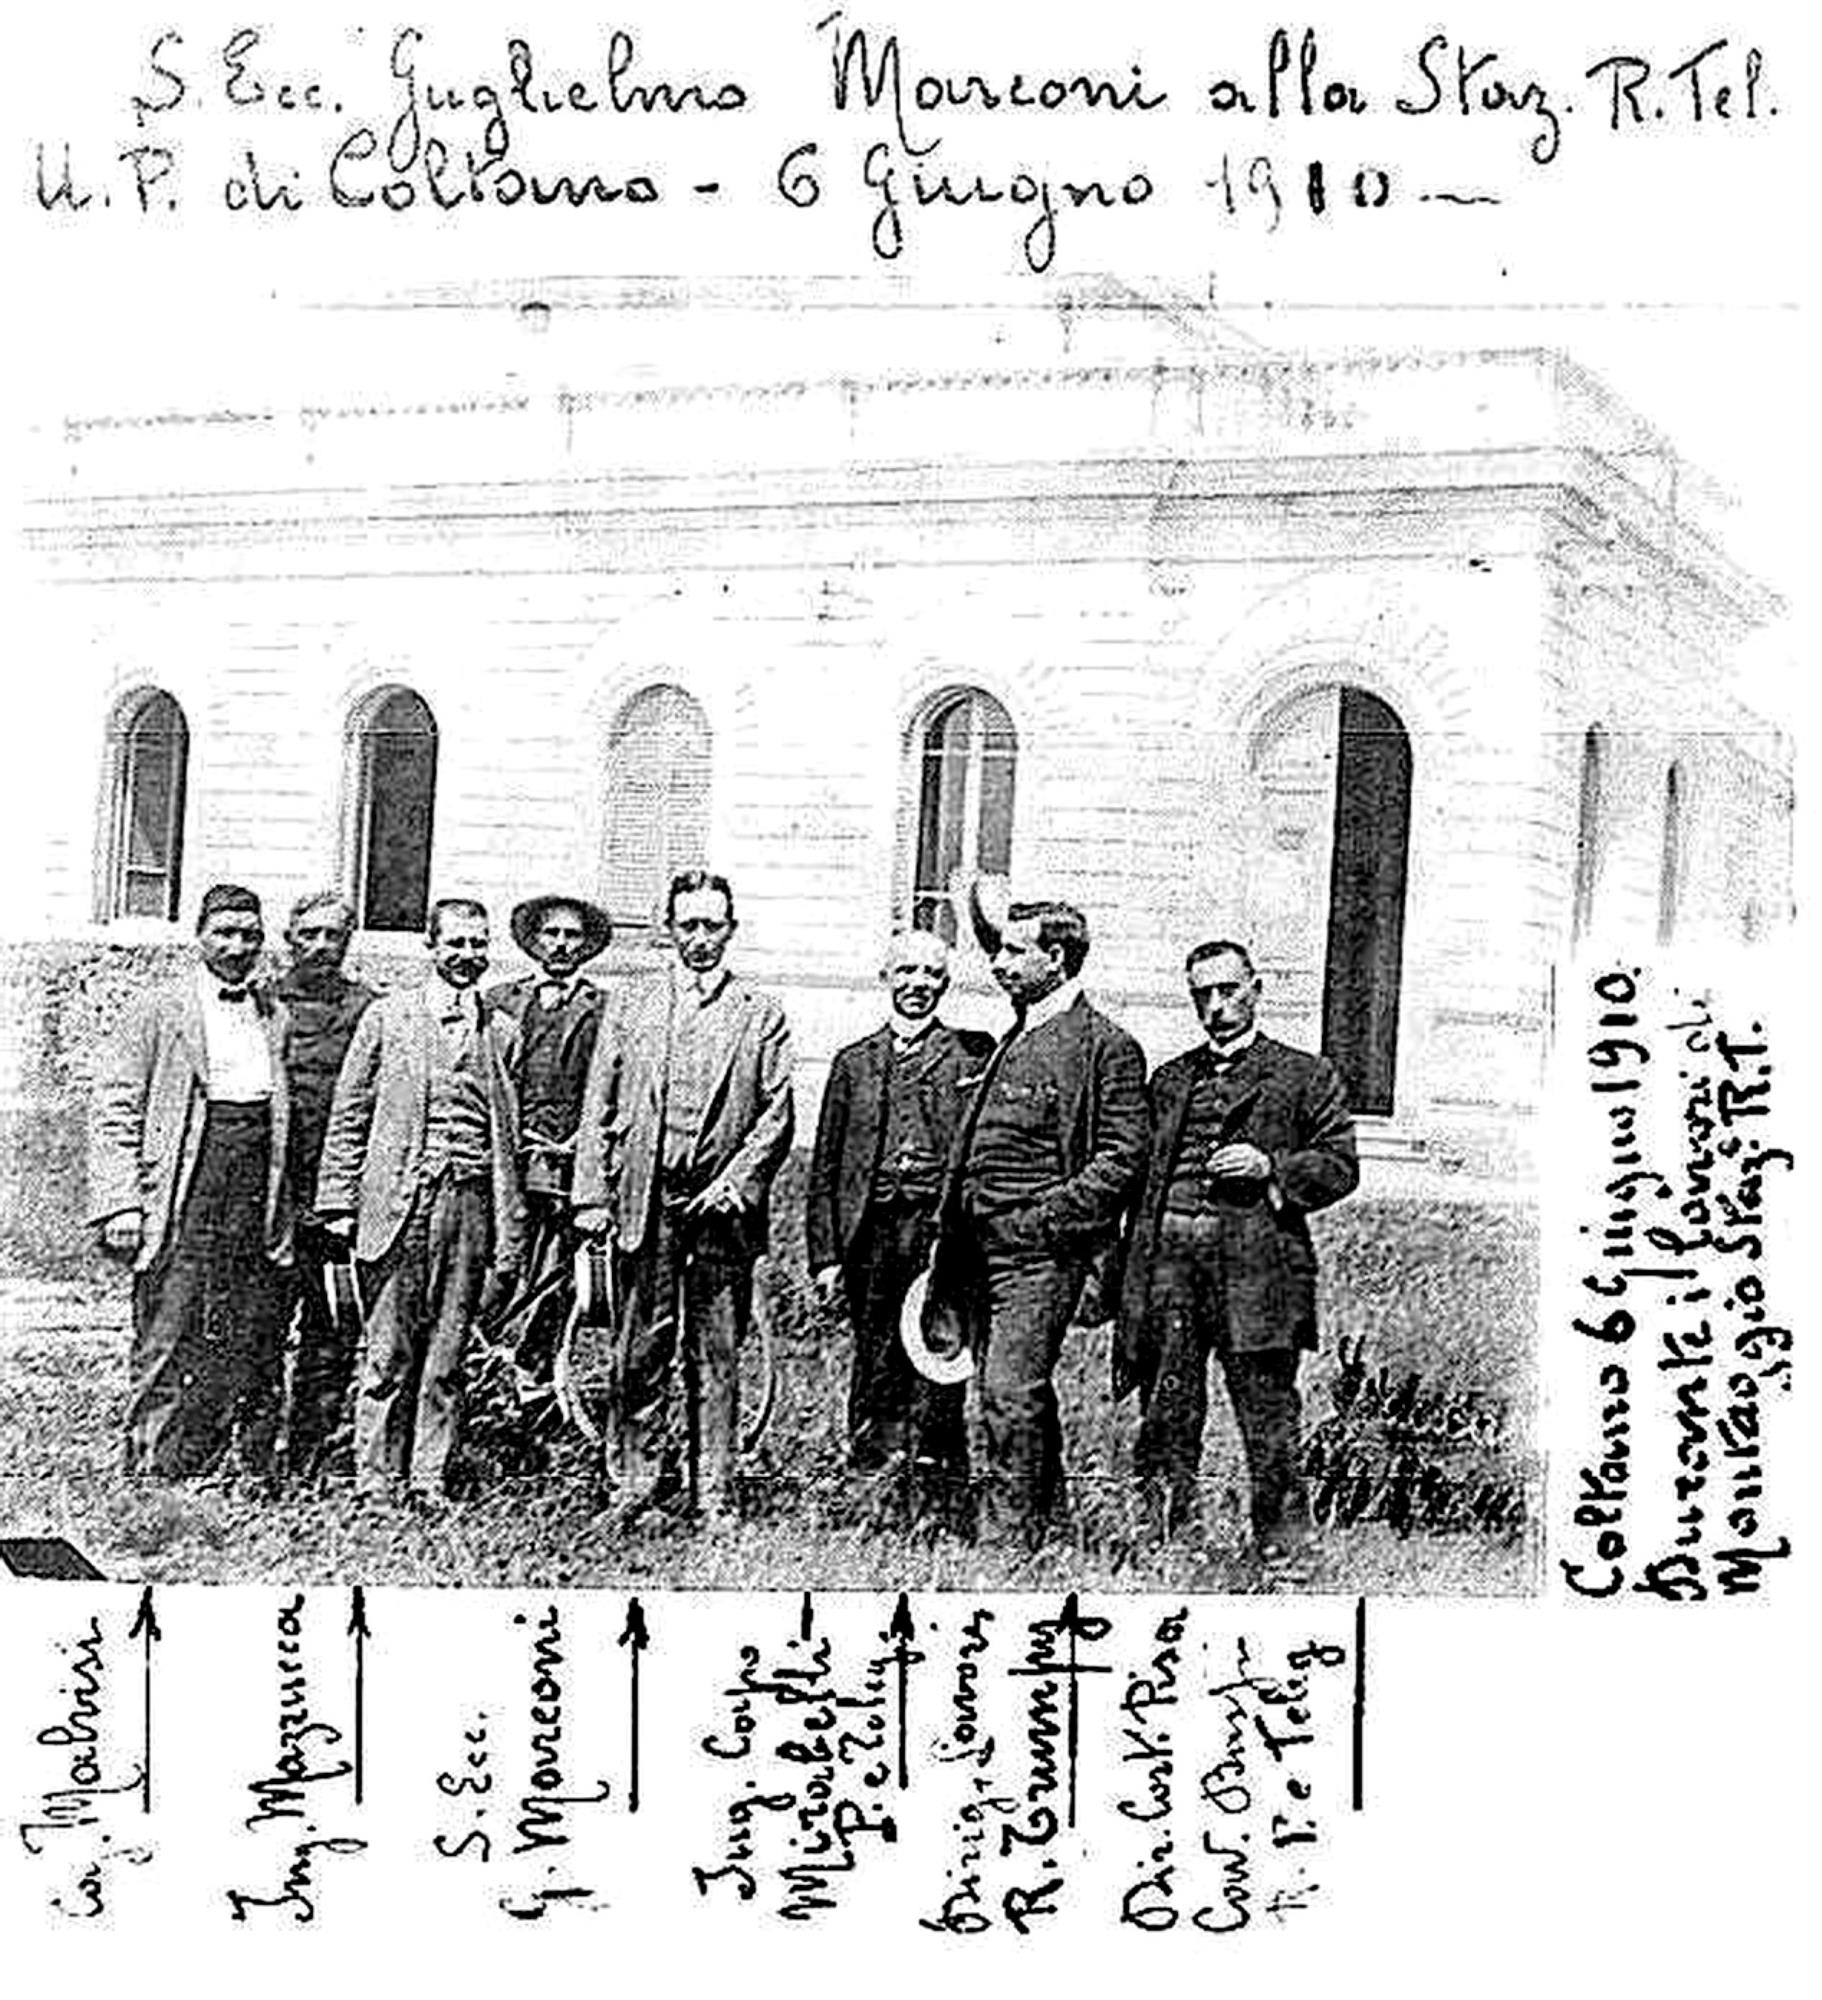 S. Ecc. Guglielmo Marconi alla Staz. R. Tel.
U. P. di Coltano - 6 Giugno 1910
Coltano 6 Giugno 1910.
Durante il lavori di
Montaggio Staz. R.T.
Malvisi
Ing. Mazzucca
S. Ecc.
G. Marconi
Ing. Capo
Mirabelli
P. e Teleg.
Dirig.
R. Trumpy
Dir. Cost. Pisa
Cav.
P. e Teleg